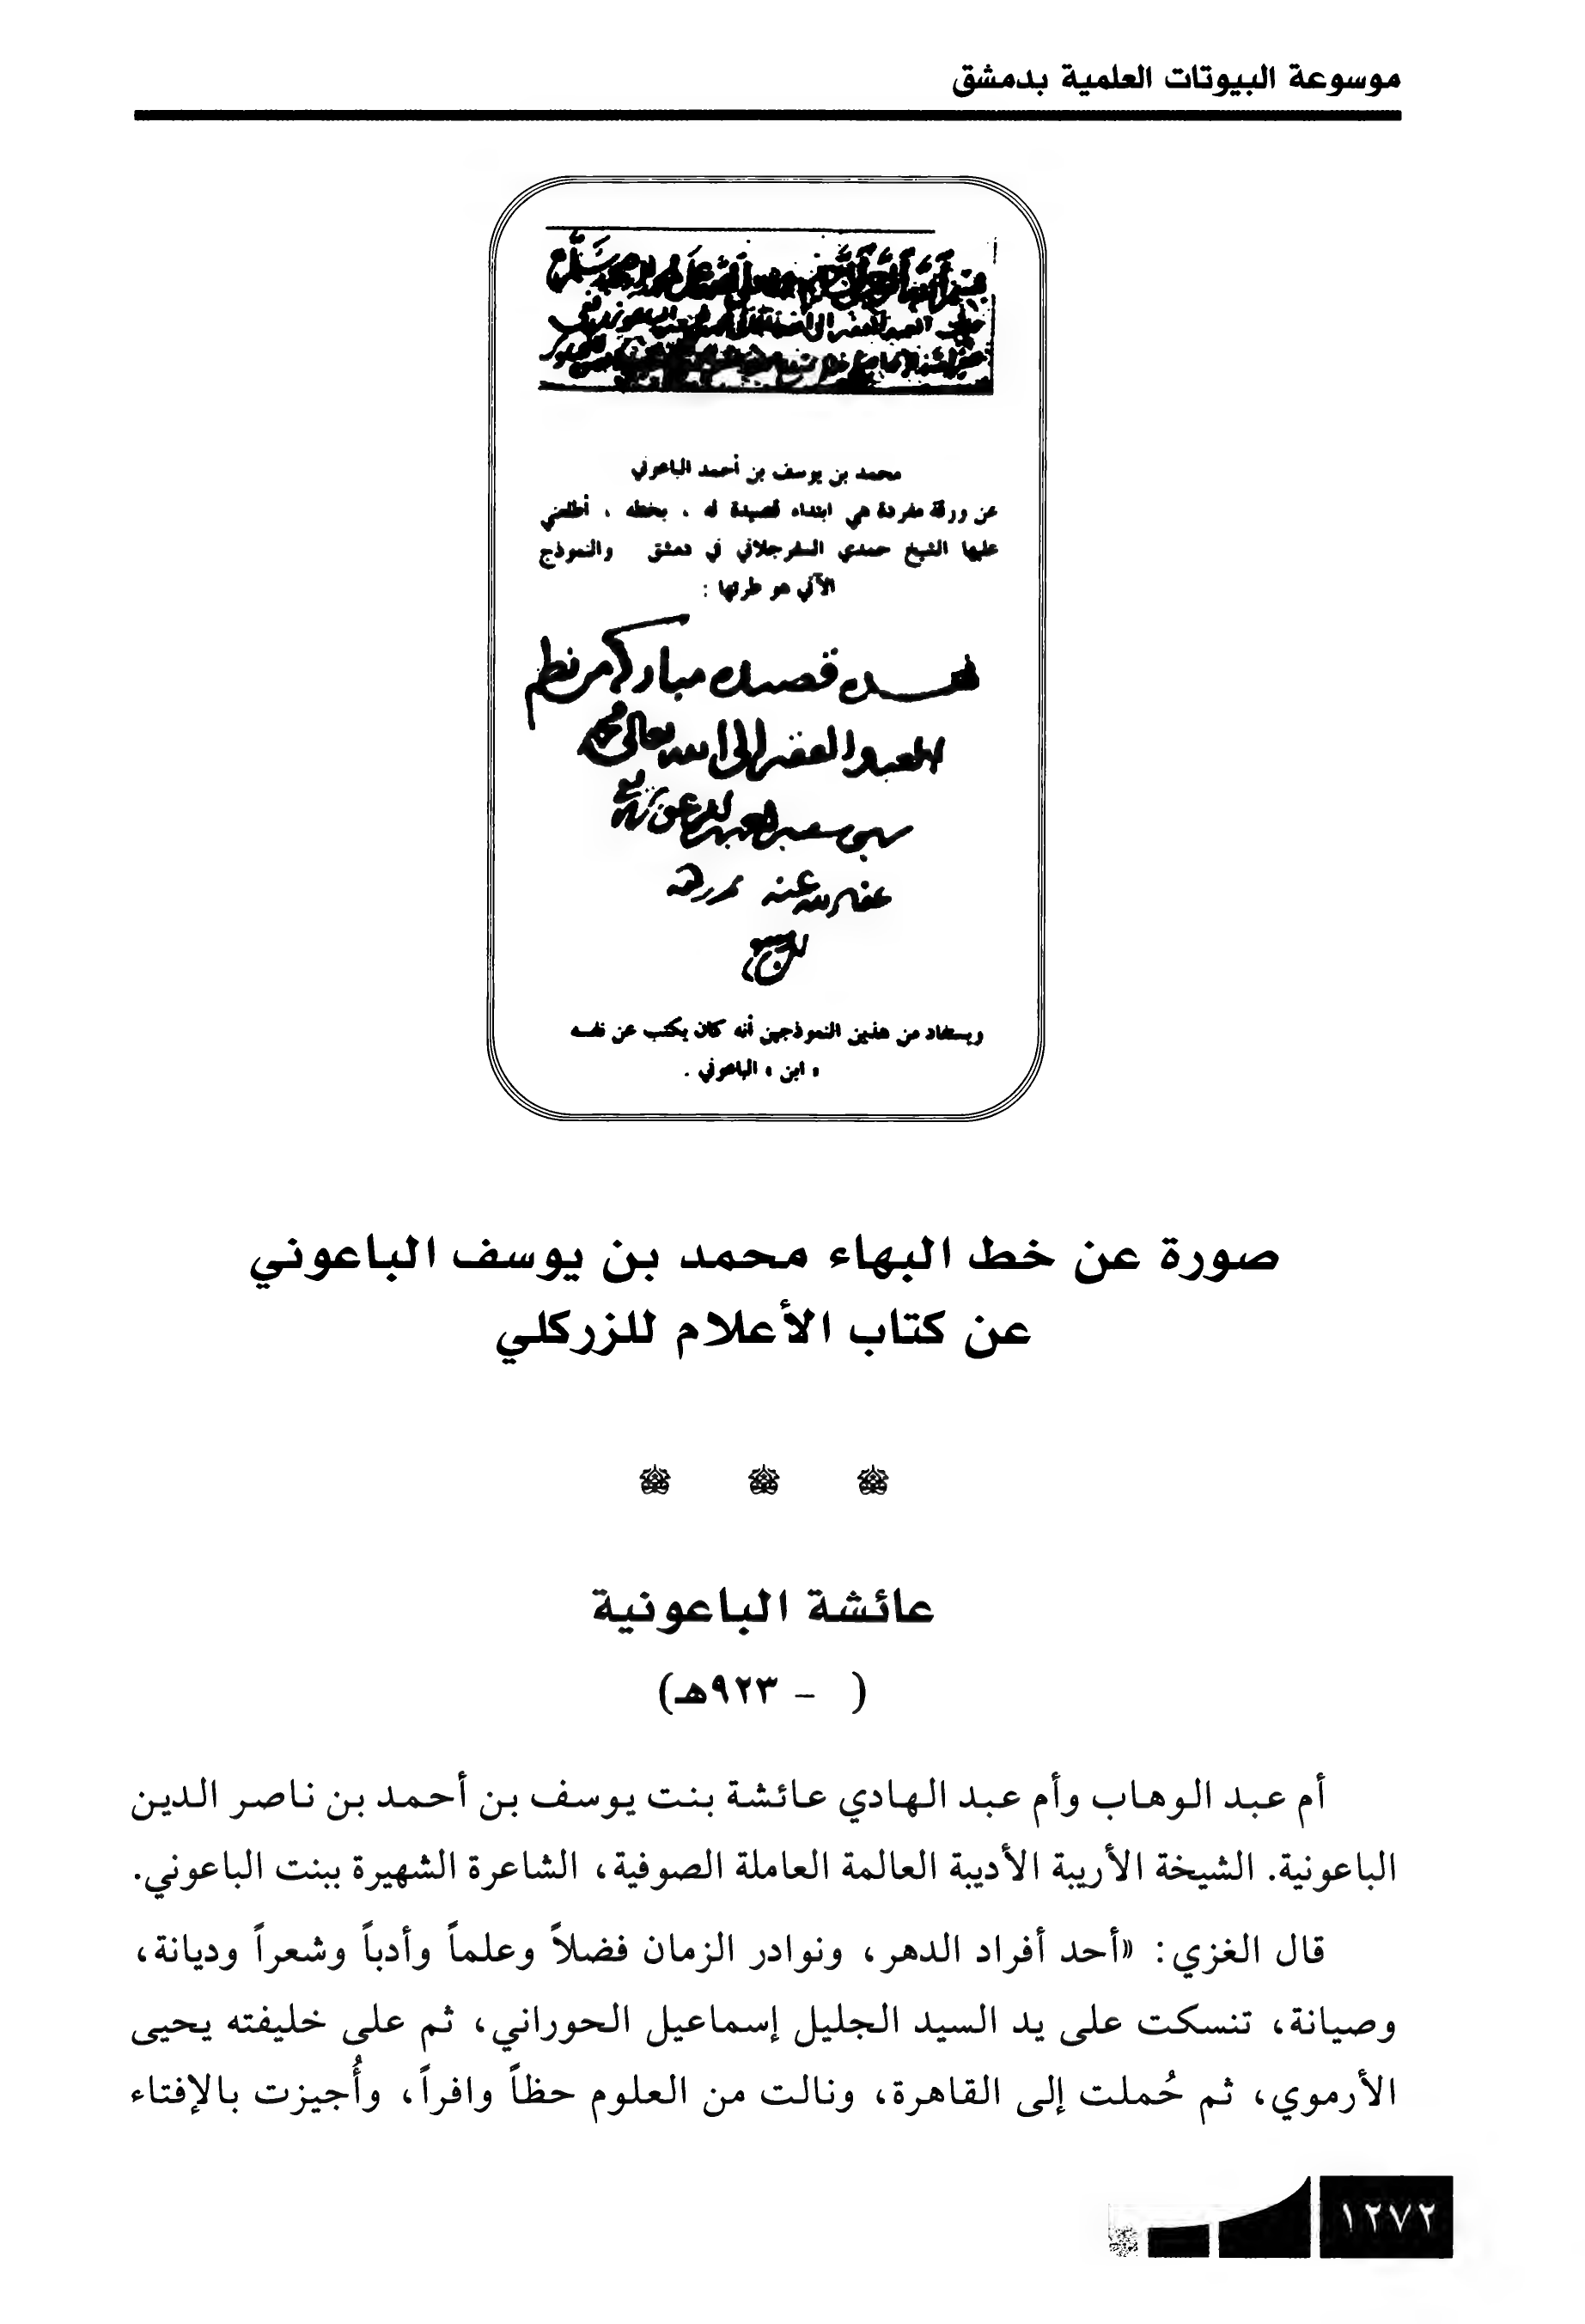 موسوعة البيوتات العلمية بدمشق
محمد بن يوسف بن أحمد الباعوني
عن ورقة مفردة هي ابتداء قصيدة له ، بخطه ، أطلعني
عليها الشيخ حمدي السفرجلاني في دمشق والنموذج
الآتي هو طرتها :
هذه قصيده مباركه من نظم
العبد الفقير الى الله تعالى محمد
عفا الله عنه
ويستفاد من هذين النموذجين أنه كان يكتب عن نفسه
« ابن » الباعوني .
صورة عن خط البهاء محمد بن يوسف الباعوني
عن كتاب الأعلام للزركلي
عائشة الباعونية
( - ٩٢٣هـ)
أم عبد الوهاب وأم عبد الهادي عائشة بنت يوسف بن أحمد بن ناصر الدين
الباعونية. الشيخة الأريبة الأديبة العالمة العاملة الصوفية، الشاعرة الشهيرة ببنت الباعوني.
قال الغزي: «أحد أفراد الدهر، ونوادر الزمان فضلاً وعلماً وأدباً وشعراً وديانة،
وصيانة، تنسكت على يد السيد الجليل إسماعيل الحوراني، ثم على خليفته يحيى
الأرموي، ثم حُملت إلى القاهرة، ونالت من العلوم حظاً وافراً، وأُجيزت بالإفتاء
١٢٧٢